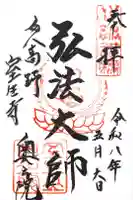 奉拝
令和八年
五月六日
弘法大師
女人高野
室生寺
奥之院